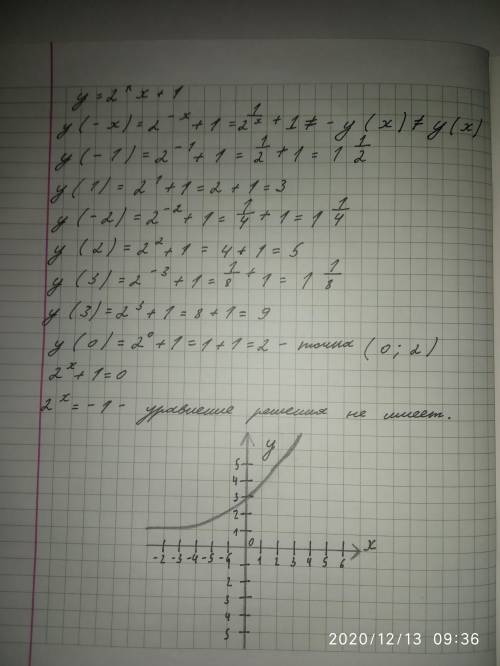 y = 2^x + 1
y(-x) = 2^-x + 1 = 1/2^x + 1 ≠ - y(x) ≠ y(x)
y(-1) = 2^-1 + 1 = 1/2 + 1 = 1 1/2
y(1) = 2^1 + 1 = 2 + 1 = 3
y(-2) = 2^-2 + 1 = 1/4 + 1 = 1 1/4
y(2) = 2^2 + 1 = 4 + 1 = 5
y(3) = 2^-3 + 1 = 1/8 + 1 = 1 1/8
y(3) = 2^3 + 1 = 8 + 1 = 9
y(0) = 2^0 + 1 = 1 + 1 = 2 - точка (0; 2)
2^x + 1 = 0
2^x = -1 - уравнение решения не имеет.
y
5
4
3
2
1
0
-2 -3 -4 -5 -6 1 2 3 4 5 6 x
2
3
4
5
2020/12/13 09:36